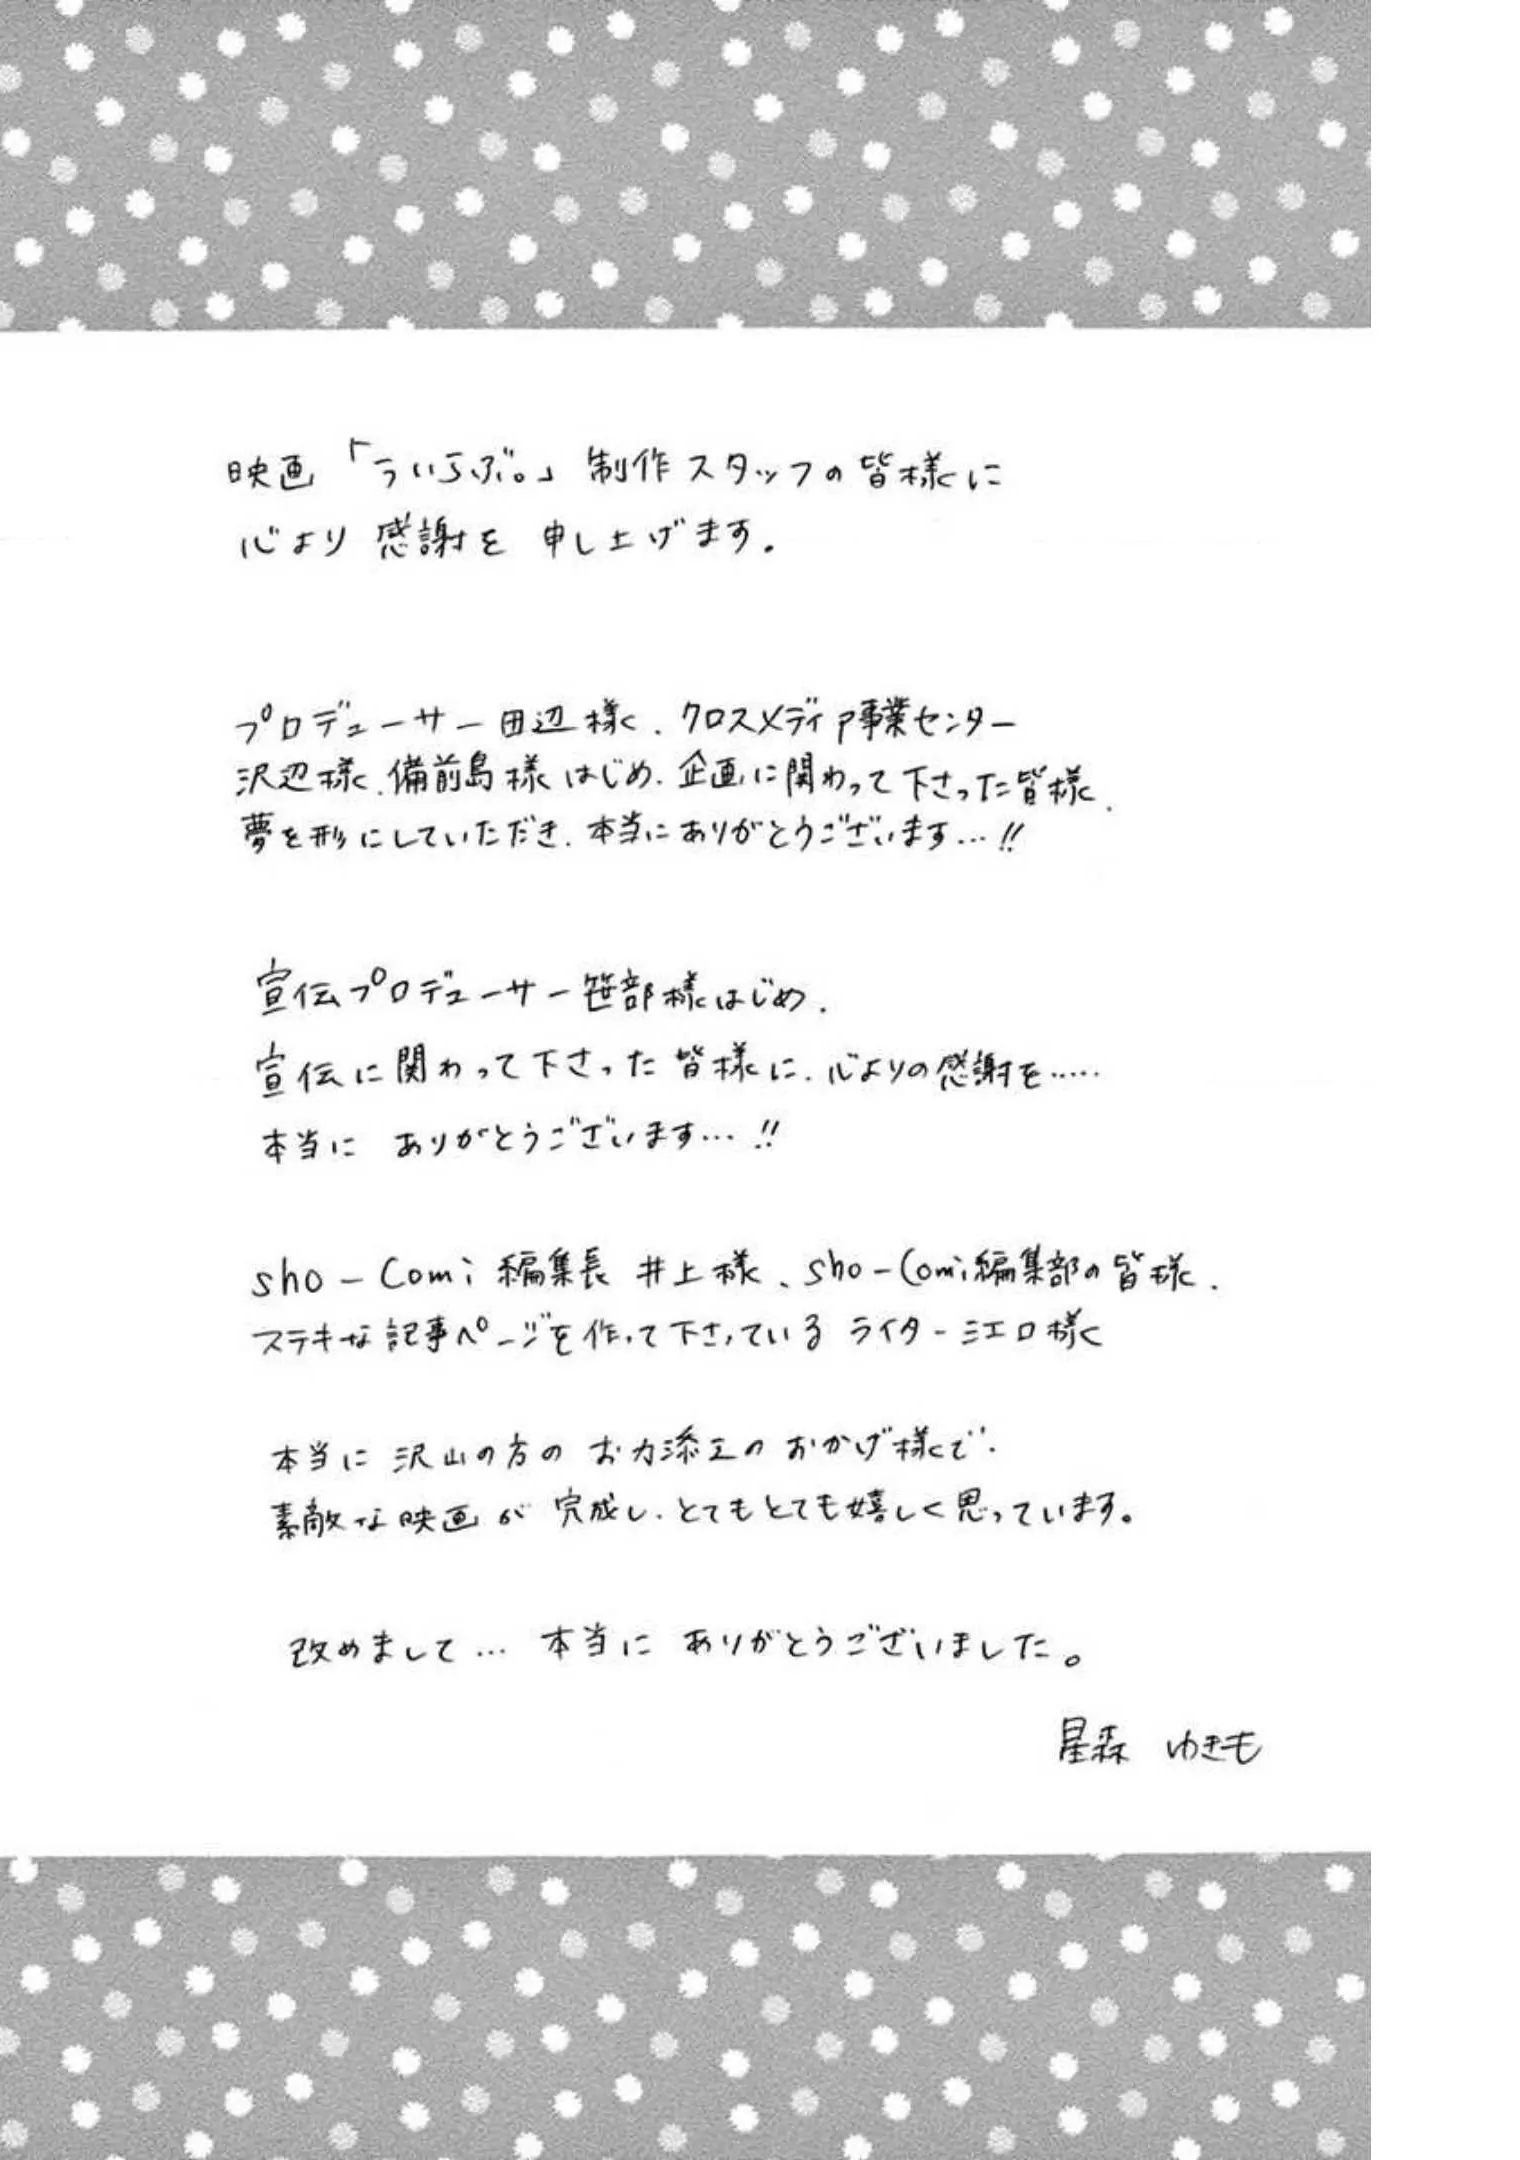 映画「ういらぶ。」制作スタッフの皆様に
心より感謝を 申し上げます。
プロデューサー田辺様、クロスメディア事業センター
沢辺様、備前島様はじめ、企画に関わって下さった皆様、
夢を形にしていただき、本当にありがとうございます…!!
宣伝プロデューサー笹部様はじめ、
宣伝に関わって下さった皆様に、心よりの感謝を……
本当に ありがとうございます…!!
Sho-Comi編集長 井上様、Sho-Comi編集部の皆様、
ステキな記事ページを作って下さっている ライター江口様
本当に 沢山の方の お力添えの おかげ様で、
素敵な映画が 完成し、とてもとても嬉しく思っています。
改めまして… 本当に ありがとうございました。
星森 ゆきも